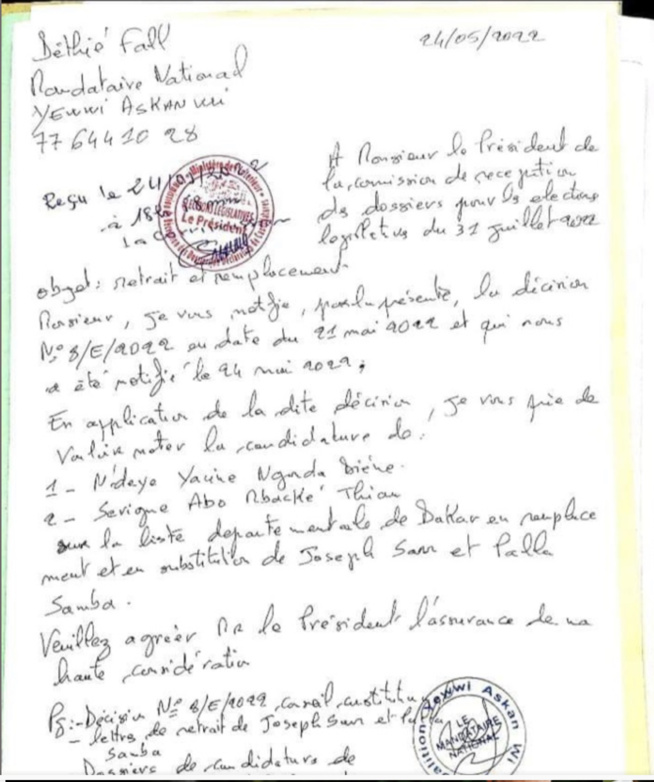 Déthié Fall
24/05/2022
Mandataire National
YEWWI ASKAN WI
77 644 10 28
Reçu le 24/05/
à 18h
Le Président
A Monsieur le Président de
la commission de reception
des dossiers pour les elections
legislatives du 31 juillet 2022
objet: retrait et remplacement
Monsieur, je vous notifie, par la présente, la décision
N° 8/E/2022 en date du 21 mai 2022 et qui nous
a été notifié le 24 mai 2022;
En application de la dite décision, je vous prie de
vouloir noter la candidature de:
1 - Ndeye Yacine Diène.
2 - Serigne Abo Mbacké Thiam
sur la liste departementale de Dakar en remplace
ment et en substitution de Joseph Sarr et Palla
Samba.
Veuillez agréer Mr le Président l'assurance de ma
haute considération
PS:- Décision N° 8/E/2022, conseil constitu
- lettres de retrait de Joseph Sarr et Palla
Samba
Dossiers de candidature de
Coalition Yewwi Askan Wi
LE
MANDATAIRE
NATIONAL